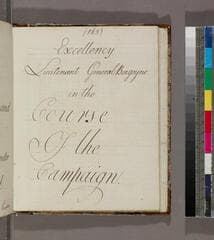 (185)
Excellency
Lieutenant General Burgoyne
in the
Course
Of the
Campaign.